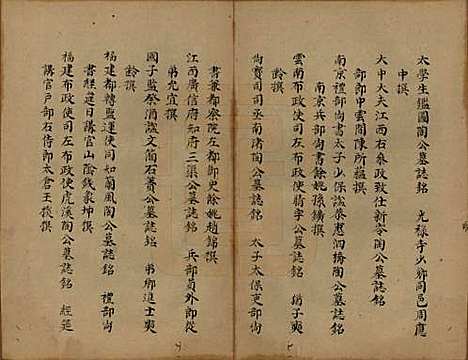 太學生鑑園陶公墓誌銘　光祿寺少卿同邑周應
中撰
大中大夫江西右參政致仕新峇陶公墓誌銘
部郎中雲間陳所蘊撰
南京禮部尚書太子少保諡榮懋泗橋陶公墓誌銘
南京兵部尚書餘姚孫鑛撰
雲南布政使司左布政使晴宇公墓誌銘　嗣子奭
齡撰
尚寶司司丞南渚陶公墓誌銘　太子太保吏部尚
書兼都察院左都御史餘姚趙錦撰
江西廣信府知府三渠公墓誌銘　兵部員外郎從
弟允宜撰
國子監祭酒諡文簡石簣公墓誌銘　弟鄉進士奭
齡撰
福建都轉鹽運使同知蘭風陶公墓誌銘　禮部尚
書經筵日講官山陰錢象坤撰
福建布政使司左布政使虎溪陶公墓誌銘　經筵
講官戶部右侍郎太倉王撰